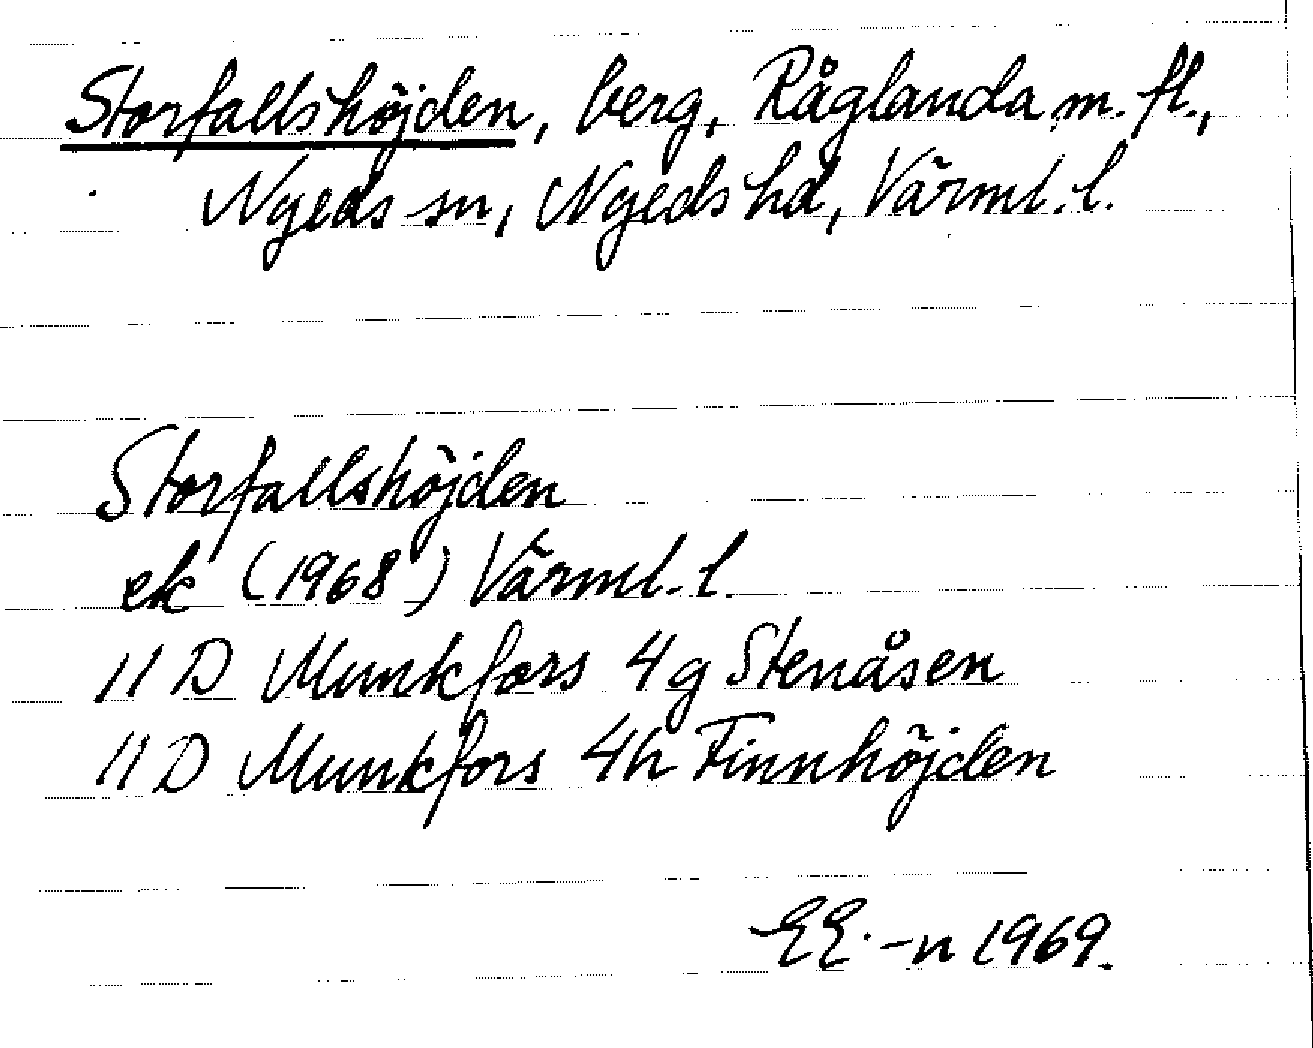 Storfallshöjden, berg, Råglanda m. fl.,
Nyeds sn, Nyeds hd, Värml. l.
Storfallshöjden
ek (1968) Värml. l.
11 D Munkfors 4g Stenåsen
11 D Munkfors 4h Finnhöjden
EE.-n 1969.